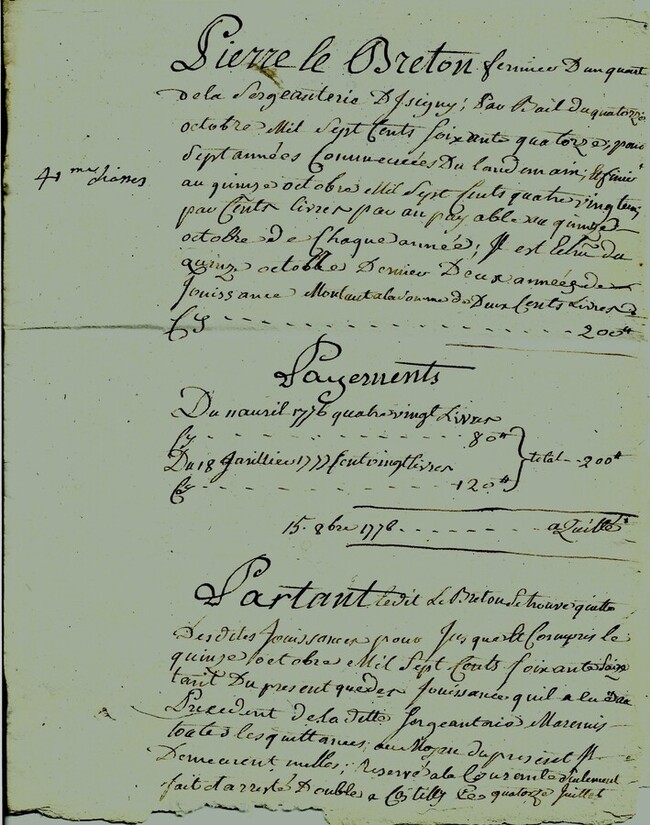 Pierre le Breton fermier D'un quart
de la Sergeanterie D'Isigny; Par Bail du quatorze
octobre Mil Sept Cents Soixante quatorze, pour
Sept années Commencées Du landemain, et finir
au quinze octobre Mil Sept Cents quatre vingt un,
par Cents livres par an payable au quinze
octobre de Chaque année; Il est Echu du
quinze octobre Dernier Deux années de
Jouissance Montant a la Somme de Deux Cents Livres
Cy - - - - - - - - - - 200tt
Payements
Du 11 avril 1776 quatre vingt Livres
Cy - - - - - - - - 80tt
Du 18 Janvier 1777 Cent vingt livres
Cy - - - - - - - - 120tt
total - - 200tt
15. 8bre 1778 - - - - - - a Quitté
Partant ledit Le Breton Se trouve quitte
Desdites Jouissances pour Jusques et Compris le
quinze octobre Mil Sept Cents Soixante Seize
tant Du present que des Jouissance qu'il a eu
Precedent de la ditte Sergeanterie M'a remis
toutes les quittances, au Moyen du present
Demeurent nulles; reservé a la
fait et arresté Double a Castilly Ce quatorze Juillet